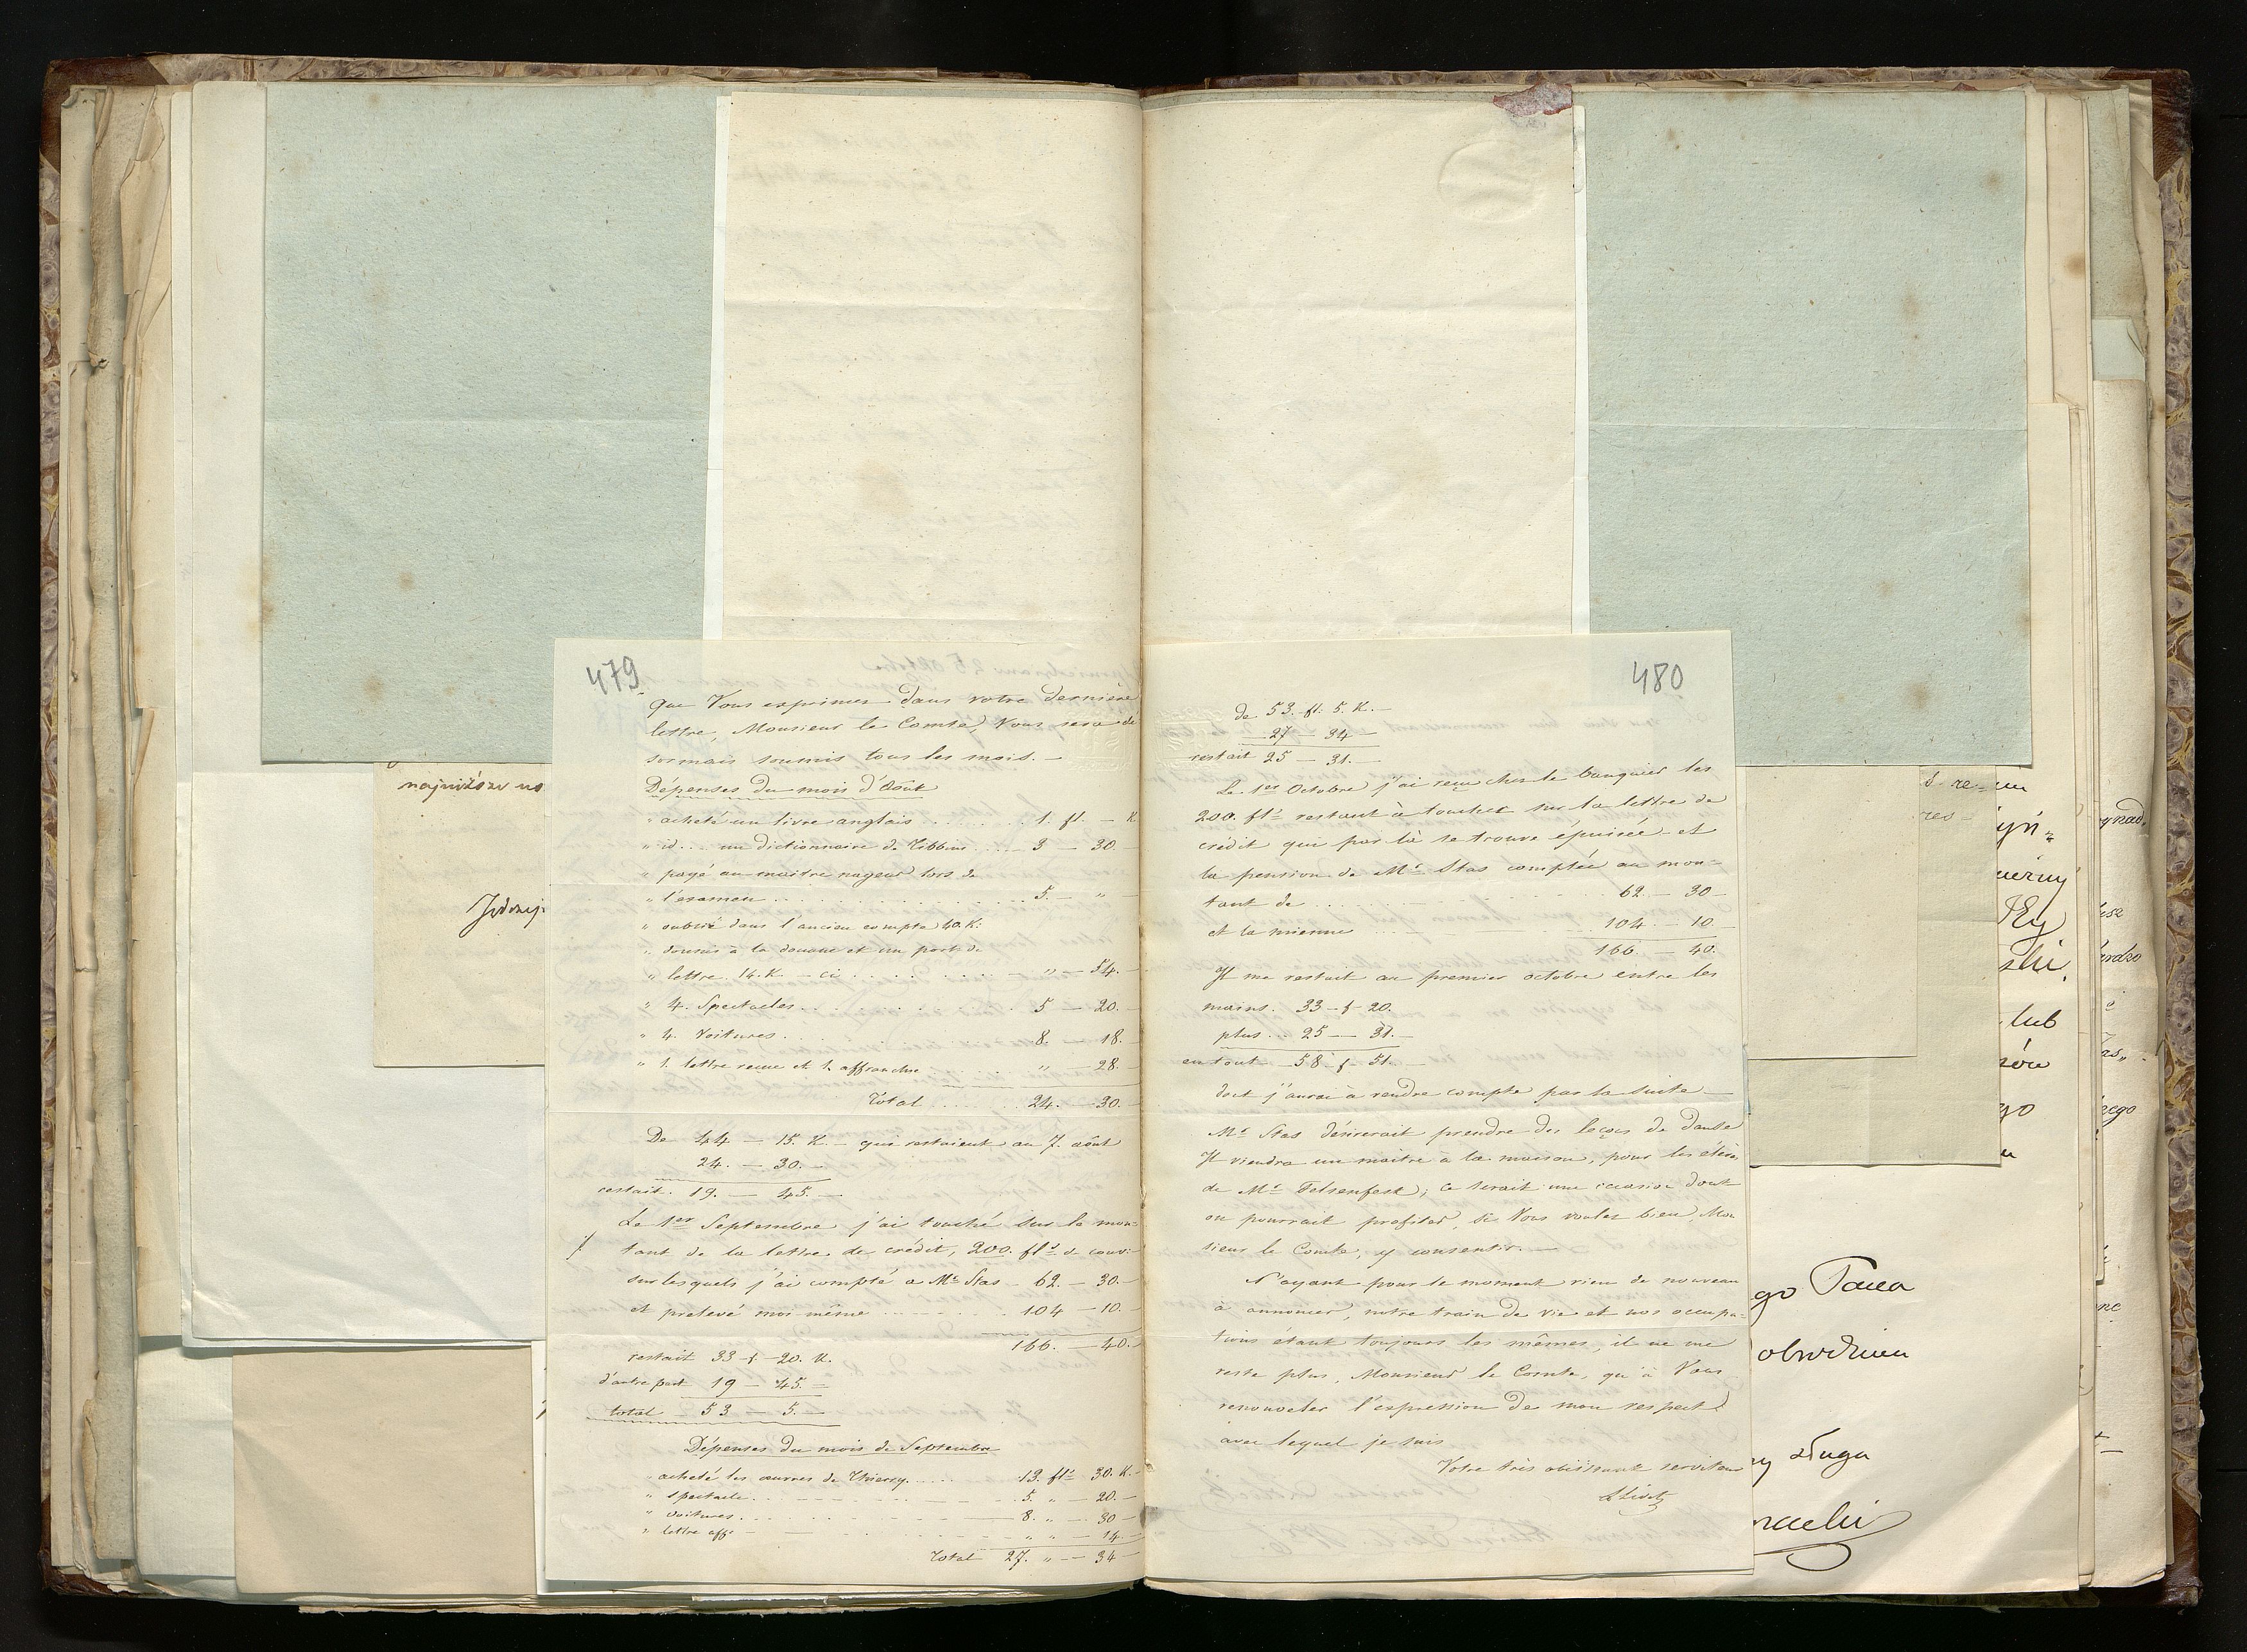 479
que Vous exprimez dans votre dernière
lettre, Monsieur le Comte, Vous sera dé
sormais soumis tous les mois. —
Dépenses du mois d'Août
" acheté un livre anglais . . . . . . 1. fl. — K
" id. . . un dictionnaire de Tibbins . . . 3 — 30. —
" payé au maître nageur lors de
" l'examen . . . . . . 5. — " —
" oublié dans l'ancien compte 40. K.
" dessus à la douane et un port de
" lettre. 14. K. — ci . . . . . . — " — 54. —
" 4. Spectacles . . . . . . 5 — 20. —
" 4. Voitures . . . . . . 8. — 18. —
" 1. lettre reçue et 1. affranchie . . . " — 28. —
Total . . . . . . 24. — 30. —
De 44 — 15. K. — qui restaient au 7. août
24. — 30. —
restait. 19. — 45. —
Le 1er Septembre j'ai touché sur le mon=
tant de la lettre de crédit, 200. fls de conv:
sur lesquels j'ai compté a Mr Stas — 62. — 30. —
et prelevé moi même . . . . . . 104 — 10. —
166. — 40. —
restait 33 f. — 20. K.
d'autre part 19 — 45. —
total — 53 — 5. —
Dépenses du mois de Septembre
" acheté les œuvres de Thierry . . . . 13. fls 30. K. —
" spectacle . . . . . . 5. " — 20. —
" voitures . . . . . . 8. " — 30 —
" lettre aff: — . . . . . . " " — 14. —
Total 27. " — 34 —
480
de 53. fl. 5. K. —
27 — 34 —
restait 25 — 31. —
Le 1er Octobre j'ai reçu chez le banquier les
200. fls restant à toucher sur la lettre de
crédit qui par là se trouve épuisée — et
la pension de Mr Stas comptée au mon=
tant de . . . . . . 62 — 30 —
et la mienne . . . . . . 104 — 10 —
166. — 40.
Il me restait au premier octobre entre les
mains. 33 — f. 20.
plus . . 25 — 31. —
en tout — 58 f. 51. —
dont j'aurai à rendre compte par la suite —
Mr Stas désirerait prendre des leçons de danse
Il viendra un maître à la maison, pour les élèves
de Mr Felsenfest; ce serait une occasion dont
on pourrait profiter, si Vous voulez bien, Mon
sieur le Comte, y consentir. —
N'ayant pour le moment rien de nouveau
à annoncer, notre train de vie et nos occupa=
tions étant toujours les mêmes, il ne me
reste plus, Monsieur le Comte, qu'à Vous
renouveler l'expression de mon respect
avec lequel je suis
Votre très obéissant serviteur
najniższe
go
lub
go
obrodzieu
sługa